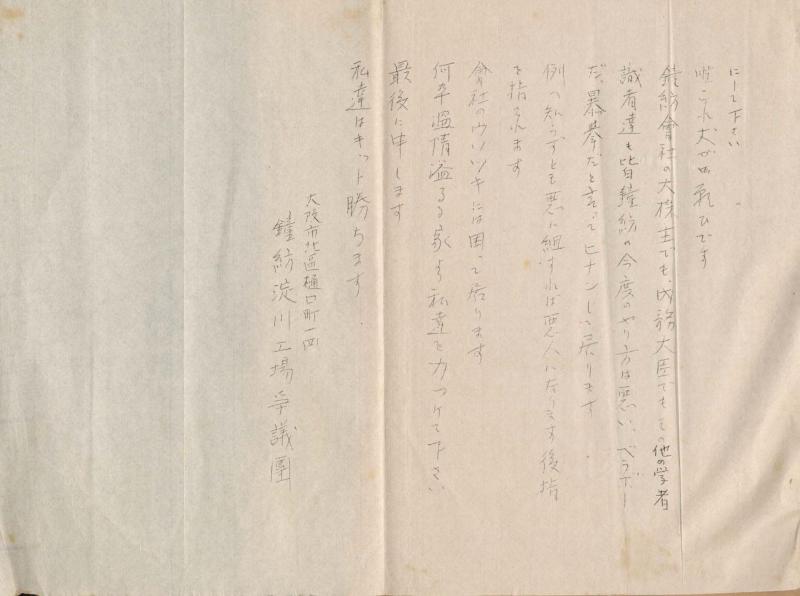 にして下さい
唯これ丈が御願ひです
鐘紡會社の大株主でも、内務大臣でもその他の学者
識者達も皆鐘紡の今度のやり方は悪い、ベラボー
だ、暴挙だと言ってヒナンして居ります
例へ知らずとも悪に組すれば悪人になります後指
を指されます
會社のウソツキには困って居ります
何卒温情溢るる家より私達を力つけて下さい
最後に申します
私達はキット勝ちます
大阪市北區樋口町一四
鐘紡淀川工場争議團